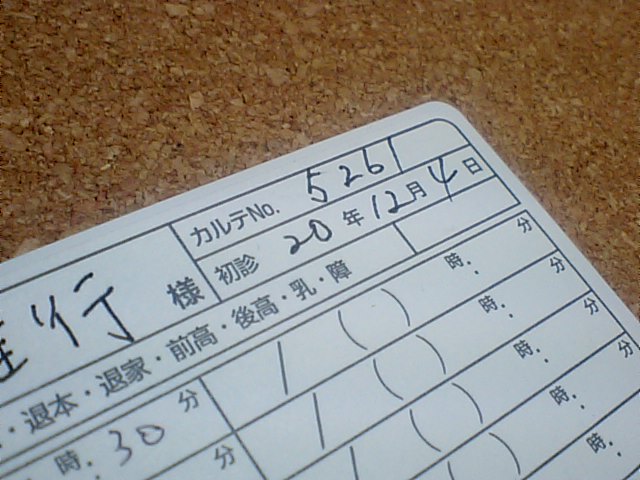 カルテNo. 5261
初診 20年12月4日
行 様
・退本・退家・前高・後高・乳・障
時: 30分 / ( ) 時: 分
分 / ( ) 時: 分
/ ( ) 時: 分
( ) 時: 分
時: